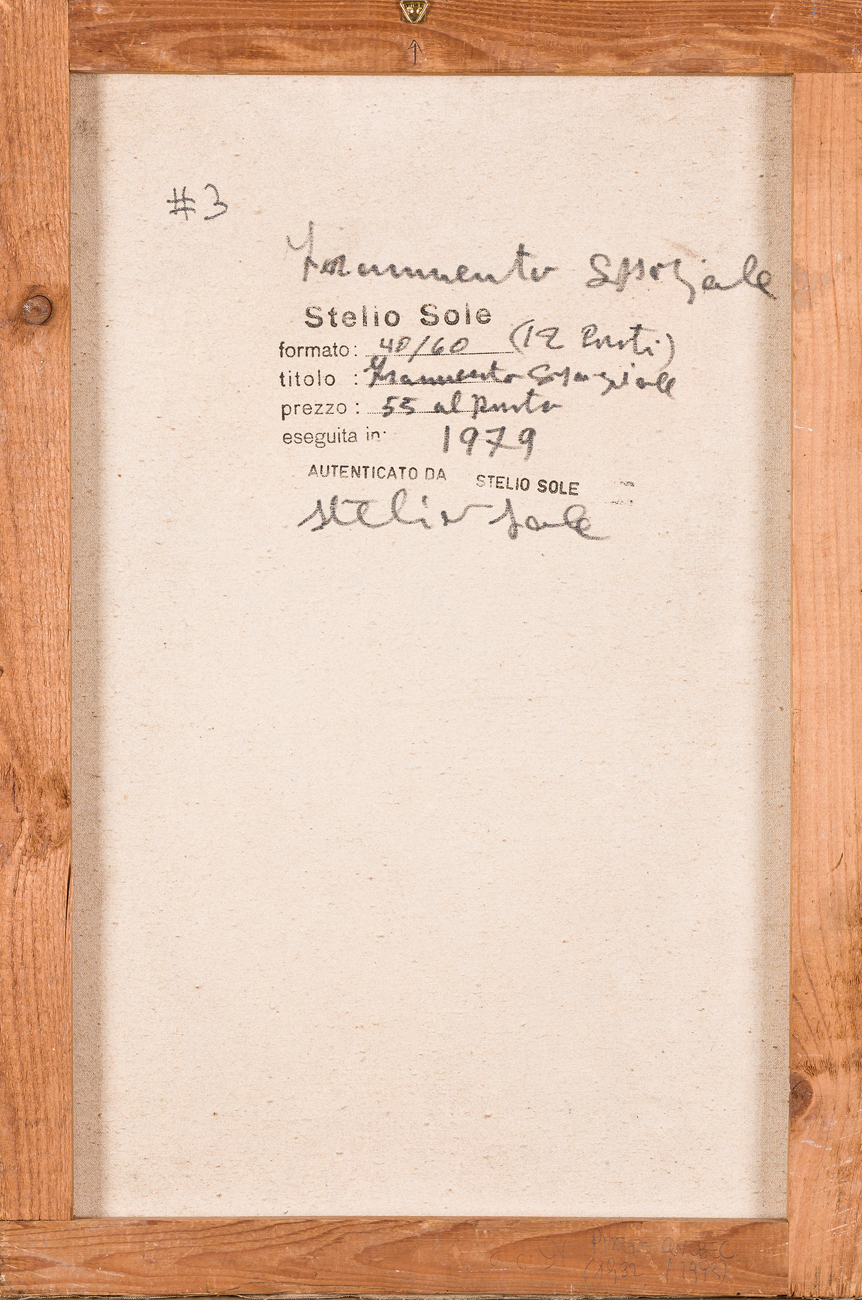 #3
Frammento Spaziale
Stelio Sole
formato: 40/60 (12 Punti)
titolo : Frammento Spaziale
prezzo : 55 al Punto
eseguita in: 1979
AUTENTICATO DA STELIO SOLE
Stelio Sole